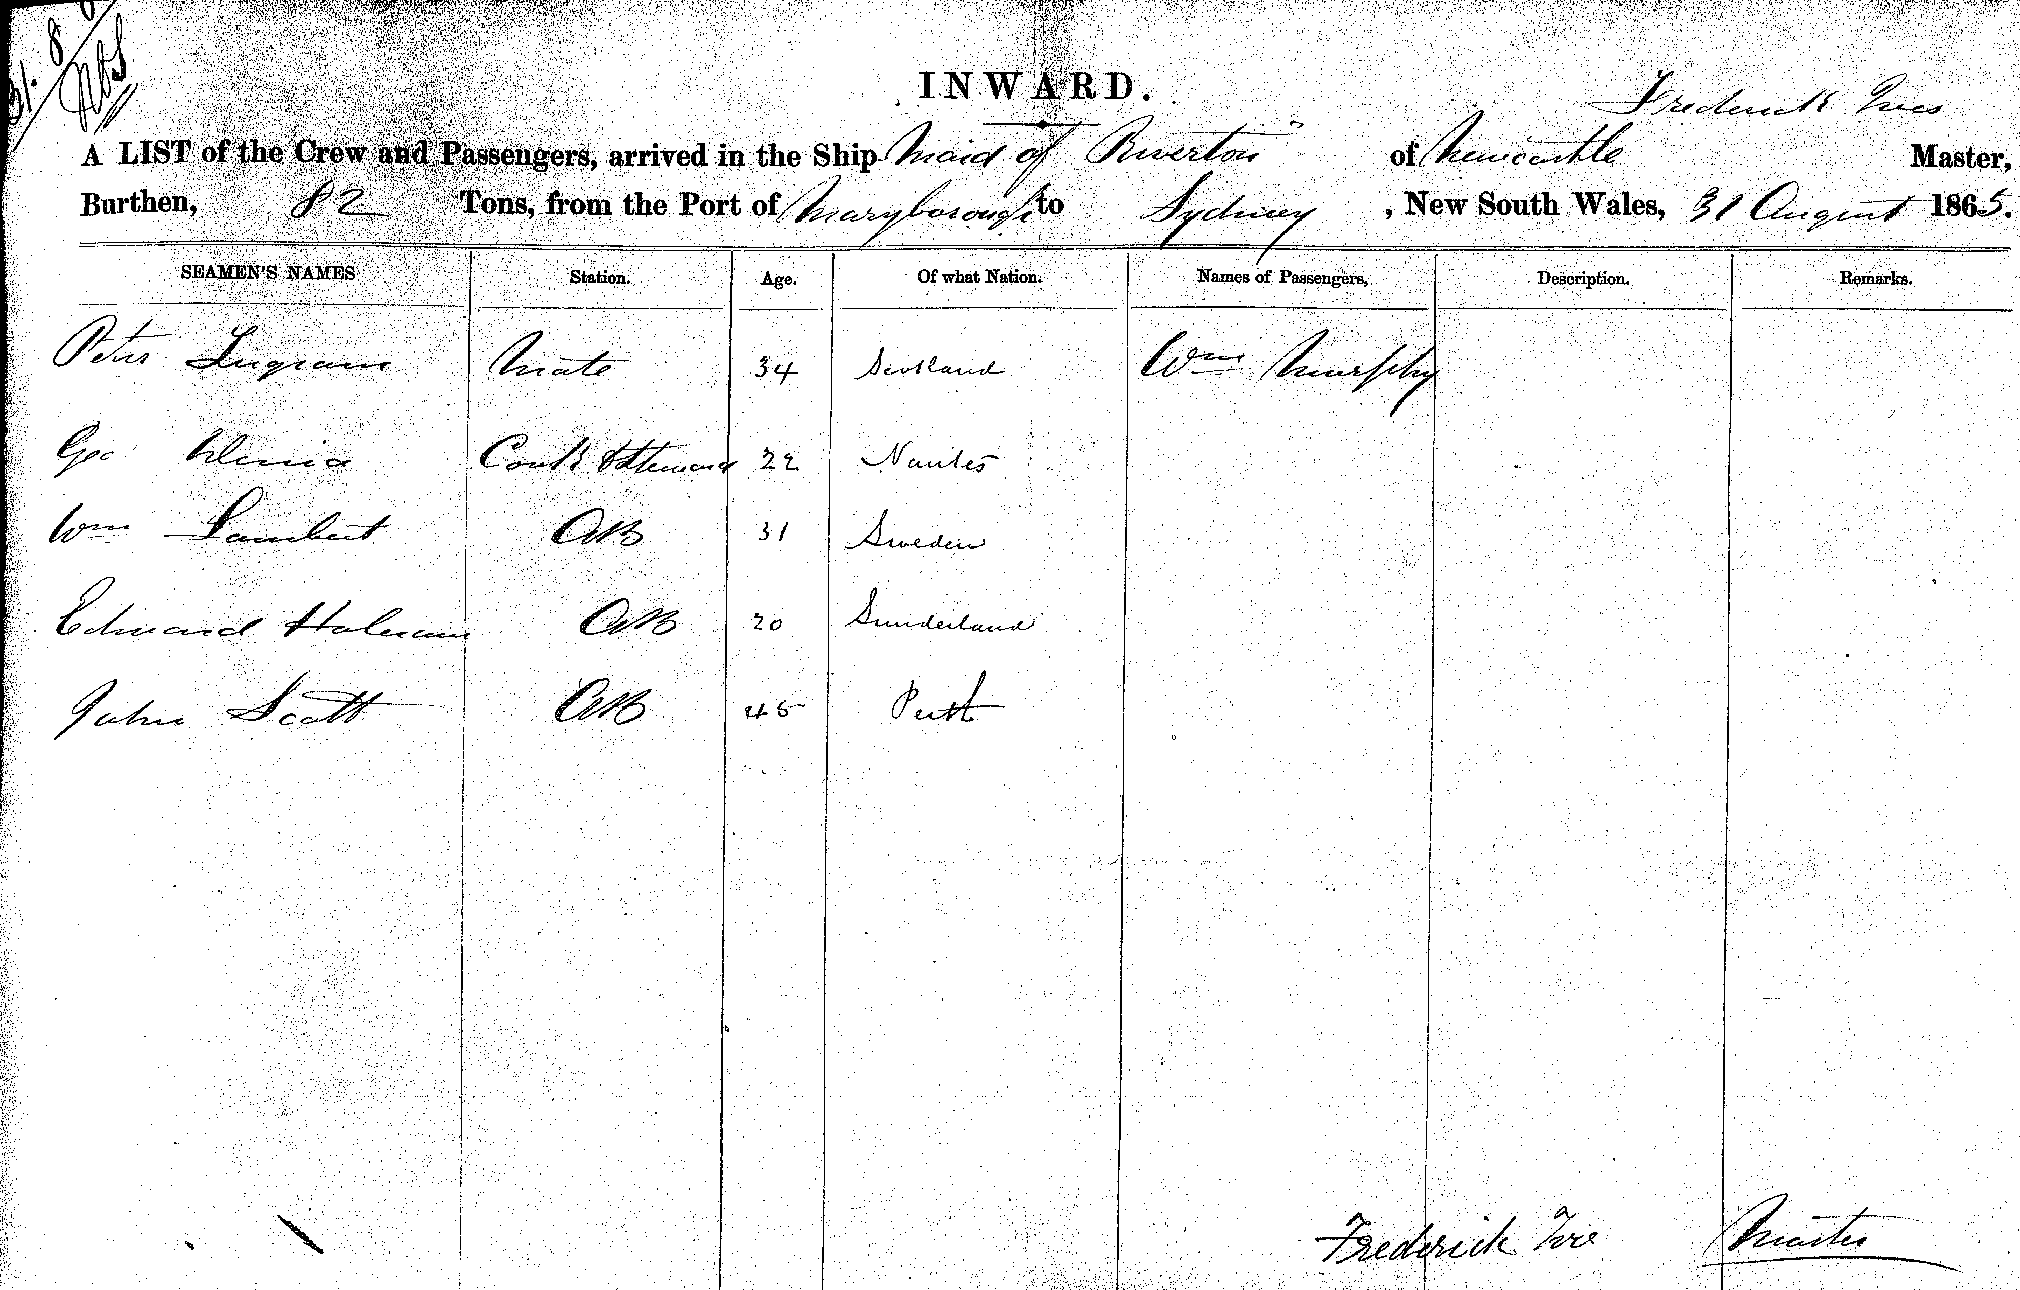 31. 8
INWARD.
Frederick
A LIST of the Crew and Passengers, arrived in the Ship Maid of Riverton of Newcastle Master,
Burthen, 82 Tons, from the Port of Maryborough to Sydney, New South Wales, 31 August 1865.
SEAMEN'S NAMES Station. Age. Of what Nation. Names of Passengers, Description. Remarks.
Peter Ingram Mate 34 Scotland Wm Murphy
Geo Cook & Steward 22 Nantes
Wm Lambert AB 31 Sweden
Edward Holman AB 20 Sunderland
John Scott AB 45 Perth
Frederick Master